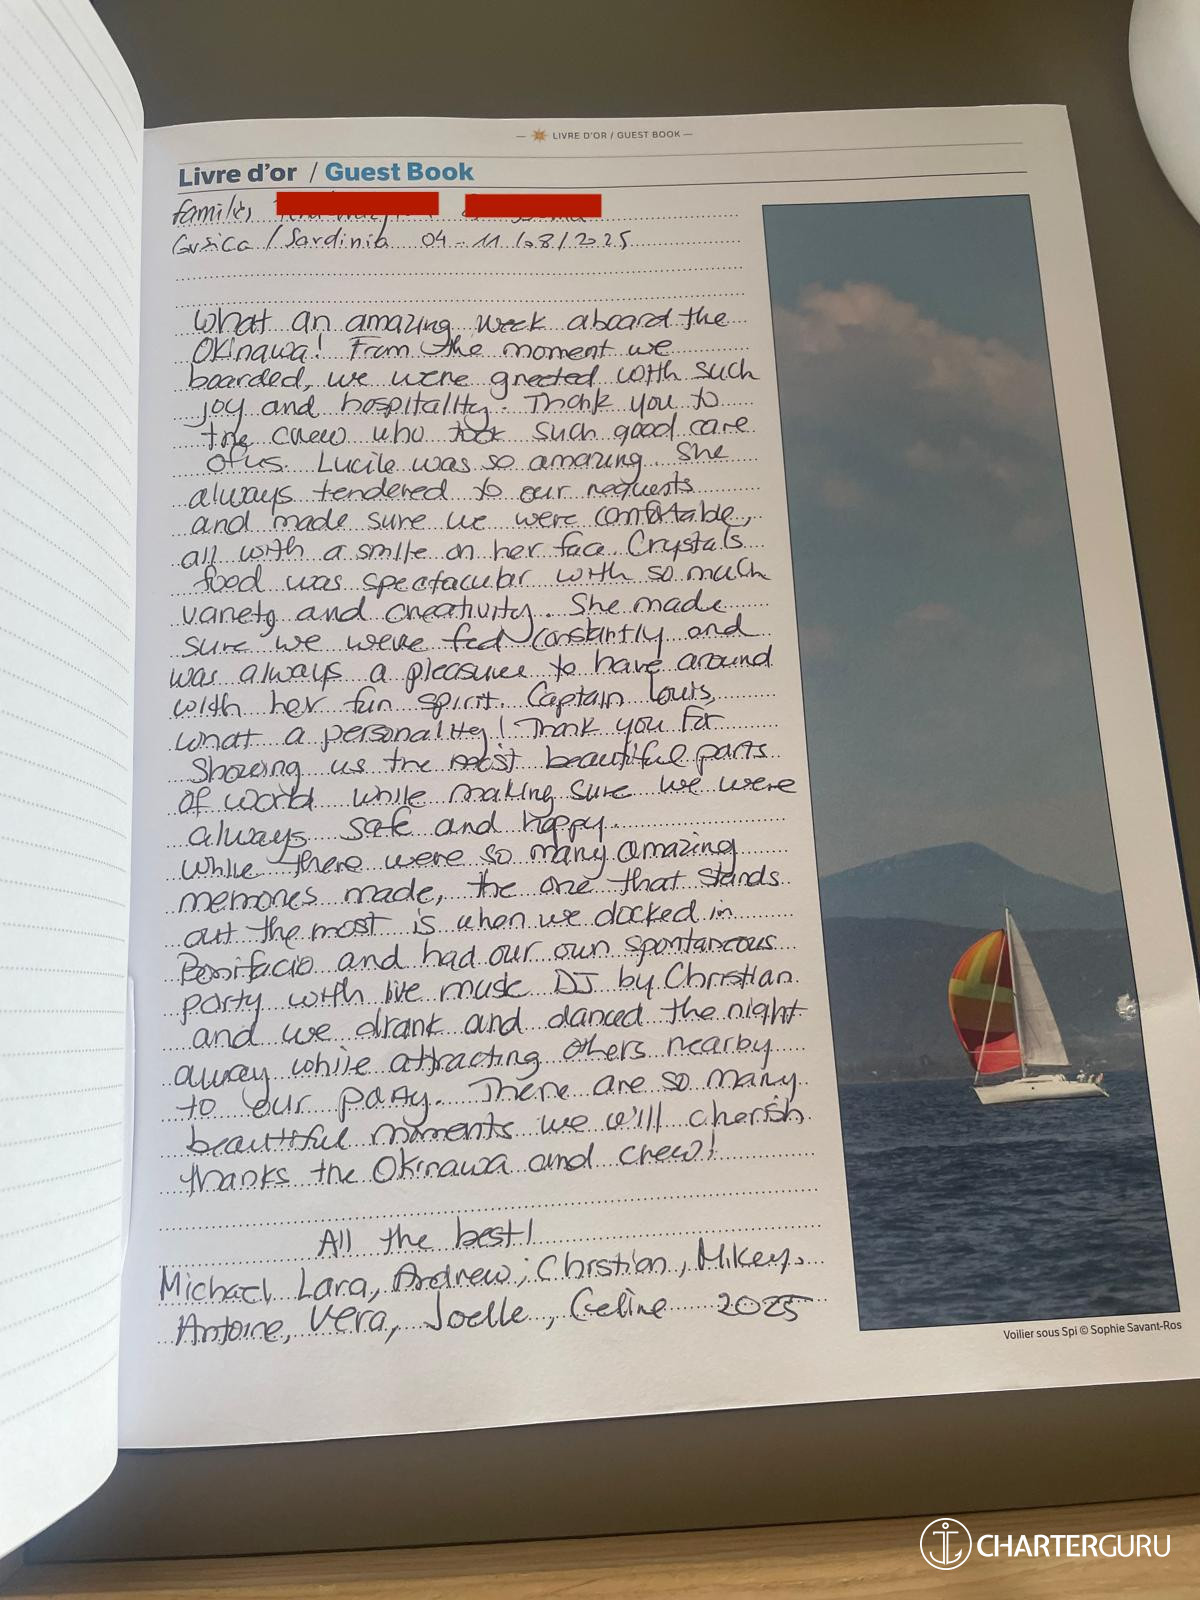 LIVRE D'OR / GUEST BOOK
Livre d'or / Guest Book
Corsica / Sardinia 04-11/08/2025
What an amazing week aboard the
Okinawa! From the moment we
boarded, we were greeted with such
joy and hospitality. Thank you to
the crew who took such good care
of us. Lucile was so amazing. She
always tendered to our requests
and made sure we were comfortable,
all with a smile on her face. Crystals
food was spectacular with so much
variety and creativity. She made
sure we were fed constantly and
was always a pleasure to have around
with her fun spirit. Captain Louis,
what a personality! Thank you for
showing us the most beautiful parts
of world while making sure we were
always safe and happy.
While there were so many amazing
memories made, the one that stands
out the most is when we docked in
Bonifacio and had our own spontaneous
party with live music DJ by Christian
and we drank and danced the night
away while attracting others nearby
to our party. There are so many
beautiful moments we will cherish
thanks the Okinawa and crew!
All the best!
Michael, Lara, Andrew, Christian, Mikey,
Antoine, Vera, Joelle, Celine 2025
Voilier sous Spi © Sophie Savant-Ros
CHARTERGURU